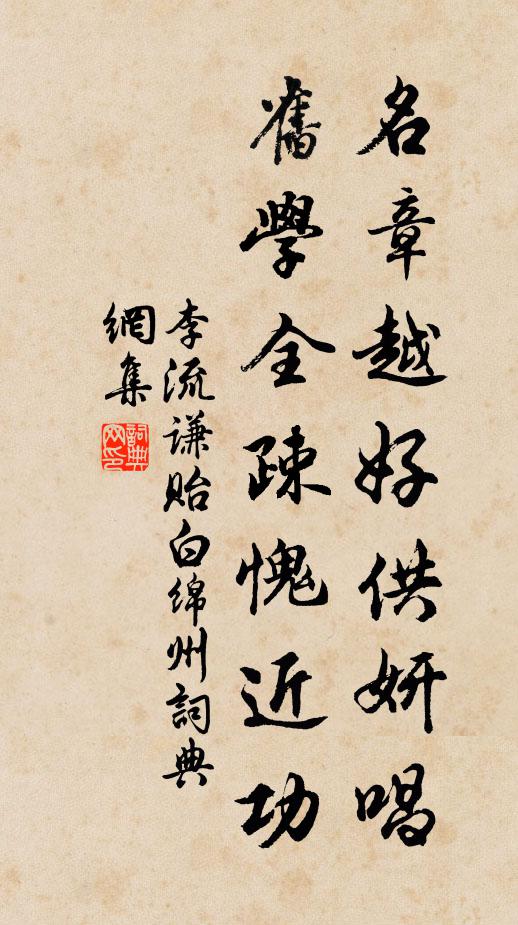 名章越好供妍唱
舊學全疎愧近功
李流谦贻白绵州詞典
網集
詞典網印